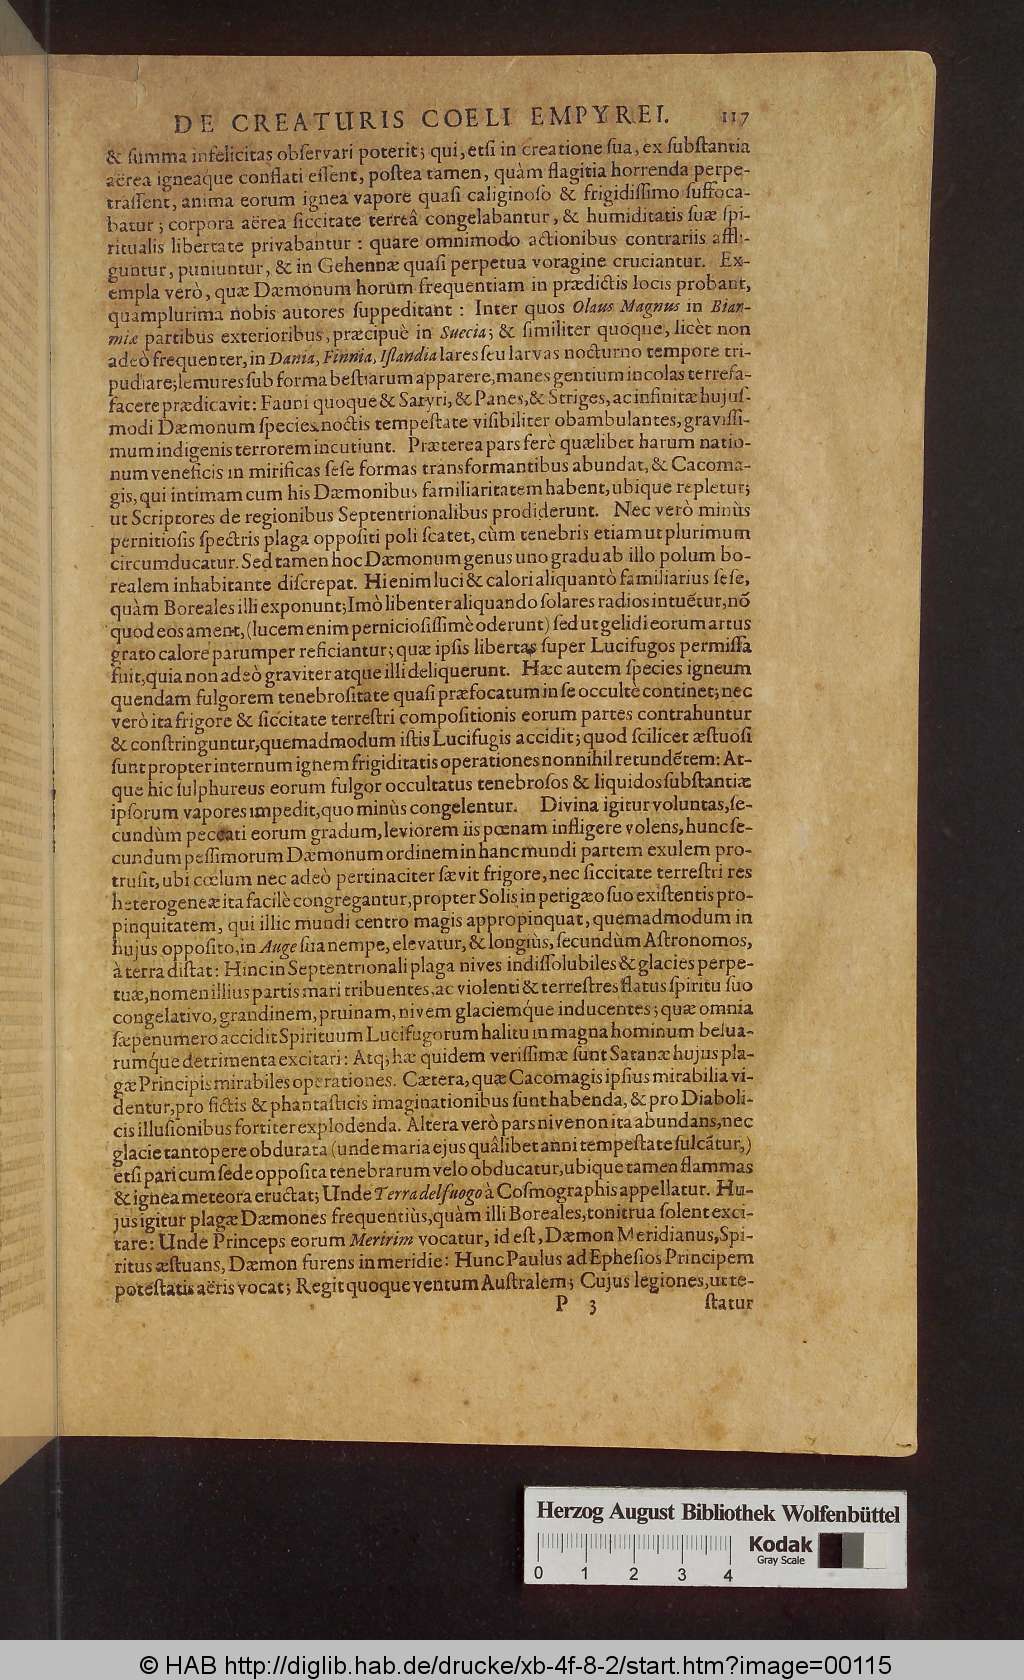 DE CREATURIS COELI EMPYREI. 117
& ſumma infelicitas obſervari poterit; qui, etſi in creatione ſua, ex ſubſtantia
aërea igneaque conflati eſſent, poſtea tamen, quàm flagitia horrenda perpe-
traſſent, anima eorum ignea vapore quaſi caliginoſo & frigidiſſimo ſuffoca-
batur; corpora aërea ſiccitate terreâ congelabantur, & humiditatis ſuæ ſpi-
ritualis libertate privabantur: quare omnimodo actionibus contrariis affli-
guntur, puniuntur, & in Gehennæ quaſi perpetua voragine cruciantur. Ex-
empla verò, quæ Dæmonum horum frequentiam in prædictis locis probant,
quamplurima nobis autores ſuppeditant: Inter quos Olaus Magnus in Biar-
miæ partibus exterioribus, præcipuè in Suecia; & ſimiliter quoque, licèt non
adeò frequenter, in Dania, Finnia, Iſlandia lares ſeu larvas nocturno tempore tri-
pudiare; lemures ſub forma beſtiarum apparere, manes gentium incolas terrefa-
facere prædicavit: Fauni quoque & Satyri, & Panes, & Striges, ac infinitæ hujuſ-
modi Dæmonum ſpecies noctis tempeſtate viſibiliter obambulantes, graviſſi-
mum indigenis terrorem incutiunt. Præterea pars ferè quælibet harum natio-
num veneficis in mirificas ſeſe formas transformantibus abundat, & Cacoma-
gis, qui intimam cum his Dæmonibus familiaritatem habent, ubique repletur;
ut Scriptores de regionibus Septentrionalibus prodiderunt. Nec verò minùs
pernitioſis ſpectris plaga oppoſiti poli ſcatet, cùm tenebris etiam ut plurimum
circumducatur. Sed tamen hoc Dæmonum genus uno gradu ab illo polum bo-
realem inhabitante diſcrepat. Hi enim luci & calori aliquantò familiarius ſeſe,
quàm Boreales illi exponunt; Imò libenter aliquando ſolares radios intuẽtur, nõ
quod eos ament, (lucem enim pernicioſiſſimè oderunt) ſed ut gelidi eorum artus
grato calore parumper reficiantur; quæ ipſis libertas ſuper Lucifugos permiſſa
fuit, quia non adeò graviter atque illi deliquerunt. Hæc autem ſpecies igneum
quendam fulgorem tenebroſitate quaſi præfocatum in ſe occultè continet; nec
verò ita frigore & ſiccitate terreſtri compoſitionis eorum partes contrahuntur
& conſtringuntur, quemadmodum iſtis Lucifugis accidit; quod ſcilicet æſtuoſi
ſunt propter internum ignem frigiditatis operationes nonnihil retundẽtem: At-
que hic ſulphureus eorum fulgor occultatus tenebroſos & liquidos ſubſtantiæ
ipſorum vapores impedit, quo minùs congelentur. Divina igitur voluntas, ſe-
cundùm peccati eorum gradum, leviorem iis pœnam infligere volens, hunc ſe-
cundum peſſimorum Dæmonum ordinem in hanc mundi partem exulem pro-
truſit, ubi cœlum nec adeò pertinaciter ſævit frigore, nec ſiccitate terreſtri res
heterogeneæ ita facilè congregantur, propter Solis in perigæo ſuo exiſtentis pro-
pinquitatem, qui illic mundi centro magis appropinquat, quemadmodum in
hujus oppoſito, in Auge ſua nempe, elevatur, & longiùs, ſecundùm Aſtronomos,
à terra diſtat: Hinc in Septentrionali plaga nives indiſſolubiles & glacies perpe-
tuæ, nomen illius partis mari tribuentes, ac violenti & terreſtres flatus ſpiritu ſuo
congelativo, grandinem, pruinam, nivem glaciemq́ue inducentes; quæ omnia
ſæpenumero accidit Spirituum Lucifugorum halitu in magna hominum belua-
rumq́ue detrimenta excitari: Atq; hæ quidem veriſſimæ ſunt Satanæ hujus pla-
gæ Principis mirabiles operationes. Cætera, quæ Cacomagis ipſius mirabilia vi-
dentur, pro fictis & phantaſticis imaginationibus ſunt habenda, & pro Diaboli-
cis illuſionibus fortiter explodenda. Altera verò pars nive non ita abundans, nec
glacie tantopere obdurata (unde maria ejus quâlibet anni tempeſtate ſulcãtur,)
etſi pari cum ſede oppoſita tenebrarum velo obducatur, ubique tamen flammas
& ignea meteora eructat; Unde Terra del fuogo à Coſmographis appellatur. Hu-
jus igitur plagæ Dæmones frequentiùs, quàm illi Boreales, tonitrua ſolent exci-
tare: Unde Princeps eorum Meririm vocatur, id eſt, Dæmon Meridianus, Spi-
ritus æſtuans, Dæmon furens in meridie: Hunc Paulus ad Epheſios Principem
poteſtatis aëris vocat; Regit quoque ventum Auſtralem; Cujus legiones, ut te-
P 3 ſtatur
Herzog August Bibliothek Wolfenbüttel
Kodak
Gray Scale
0 1 2 3 4
© HAB http://diglib.hab.de/drucke/xb-4f-8-2/start.htm?image=00115